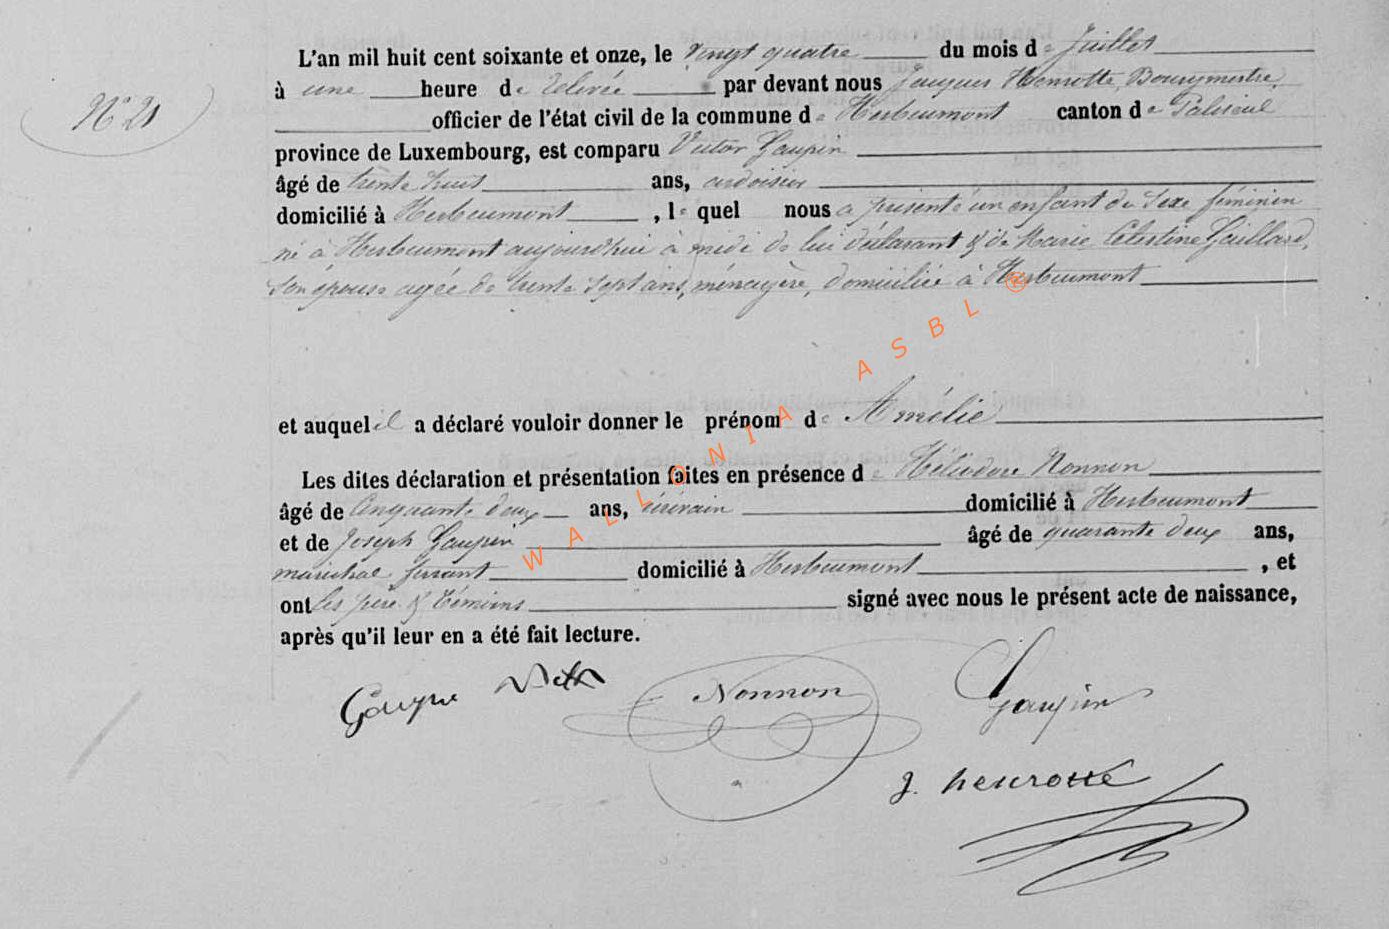 N° 21
L'an mil huit cent soixante et onze, le vingt quatre du mois de Juillet
à une heure de relevée par devant nous Jacques Henrotte, Bourgmestre,
officier de l'état civil de la commune de Herbeumont canton de Paliseul
province de Luxembourg, est comparu Victor Gaupin
âgé de trente trois ans, ardoisier
domicilié à Herbeumont, lequel nous a présenté un enfant du sexe féminin
né à Herbeumont aujourd'hui à midi de lui déclarant & de Marie Célestine Gaillard,
son épouse agée de trente sept ans, ménagère, domiciliée à Herbeumont
et auquel il a déclaré vouloir donner le prénom de Amélie
Les dites déclaration et présentation faites en présence de Héliodore Nonnon
âgé de cinquante deux ans, écrivain domicilié à Herbeumont
et de Joseph Gaupin âgé de quarante deux ans,
maréchal ferrant domicilié à Herbeumont, et
ont les père & témoins signé avec nous le présent acte de naissance,
après qu'il leur en a été fait lecture.
Nonnon
Gaupin
J. henrotte
WALLONIA ASBL ®